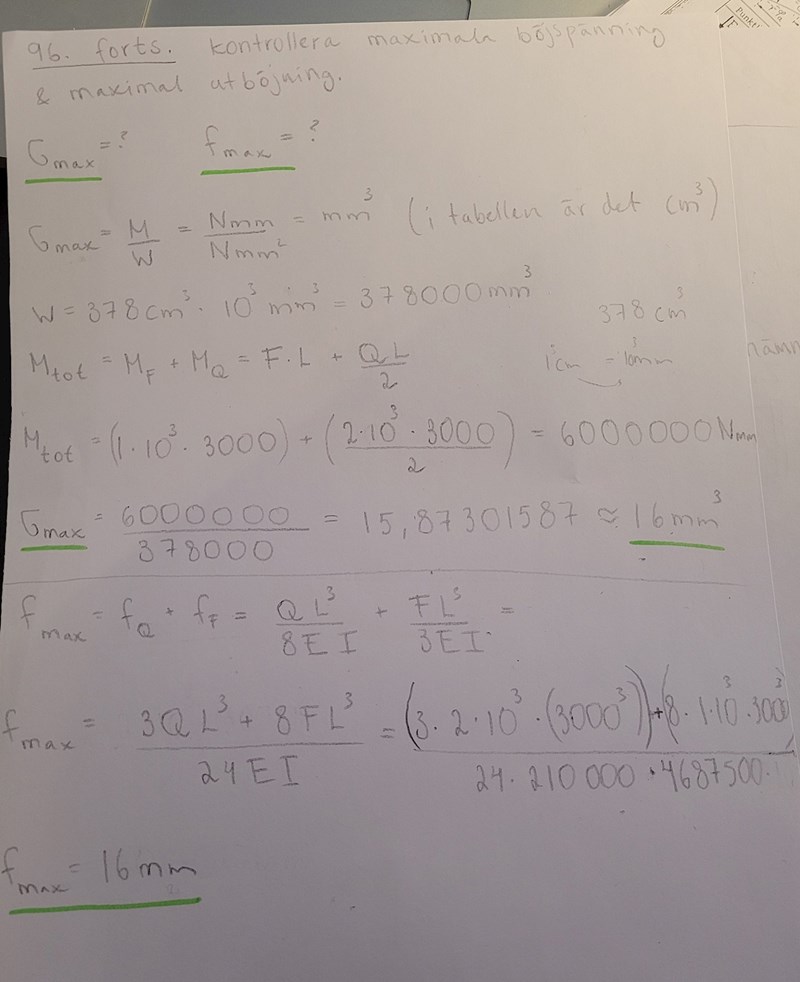 Punkt
F
96. forts. kontrollera maximala böjspänning
& maximal utböjning.
σmax = ? fmax = ?
σmax = M/W = Nmm/Nmm² = mm³ (i tabellen är det cm³)
W = 378 cm³ · 10³ mm³ = 378000 mm³ 378 cm³
Mtot = MF + MQ = F·L + QL/2
Mtot = (1·10³ · 3000) + (2·10³ · 3000/2) = 6000000 Nmm
σmax = 6000000/378000 = 15,87301587 ≈ 16 mm³
fmax = fQ + fF = QL³/8EI + FL³/3EI =
fmax = 3QL³ + 8FL³/24EI = (3·2·10³·(3000³)) + (8·1·10³·3000³)/24·210000·4687500·
fmax = 16 mm